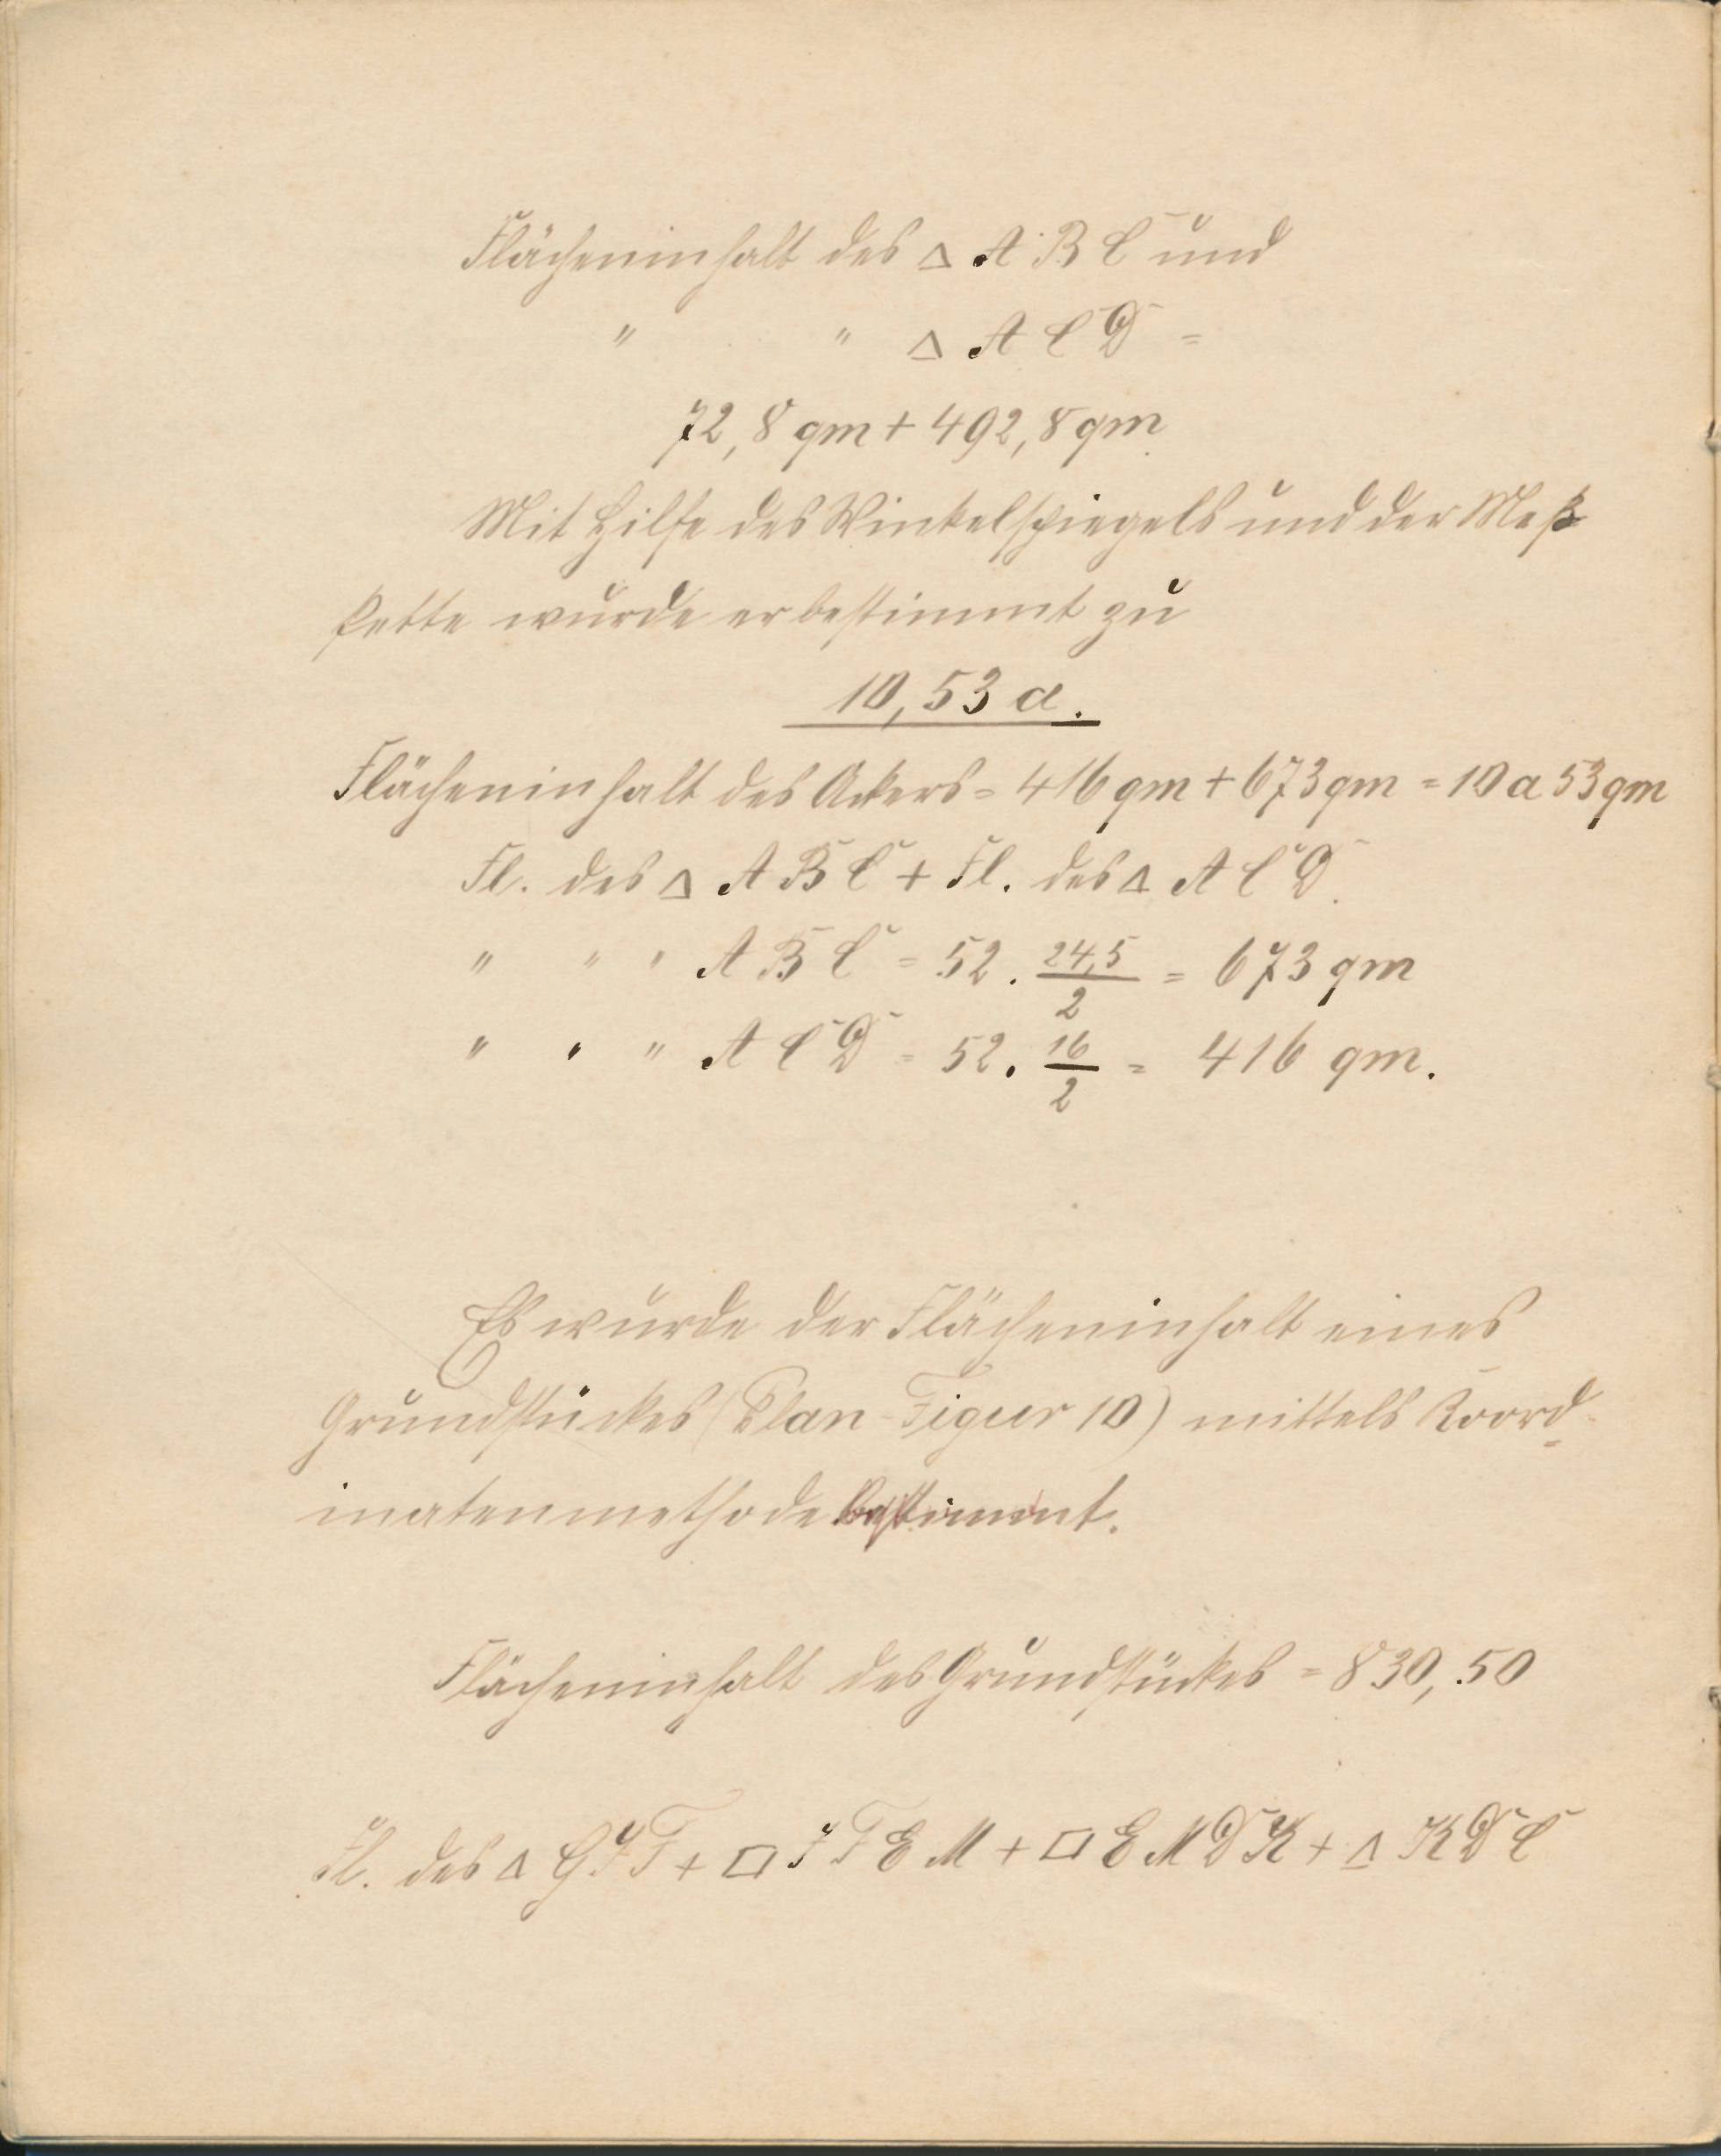 Flächeninhalt des △ A B C und
" " △ A C D =
72,8 qm + 492,8 qm
Mit Hilfe des Winkelspiegels und der Meß
kette wurde er bestimmt zu
10,53 a.
Flächeninhalt des Ackers = 416 qm + 673 qm = 10 a 53 qm
Fl. des △ A B C + Fl. des △ A C D.
" " " A B C = 52 . 24,5/2 = 673 qm
" " " A C D = 52 . 16/2 = 416 qm.
Es wurde der Flächeninhalt eines
Grundstückes (Plan-Figur 10) mittels Koord-
inatenmethode bestimmt.
Flächeninhalt des Grundstückes = 830,50
Fl. des △ G J F + □ J F E M + □ E M D K + △ K D C